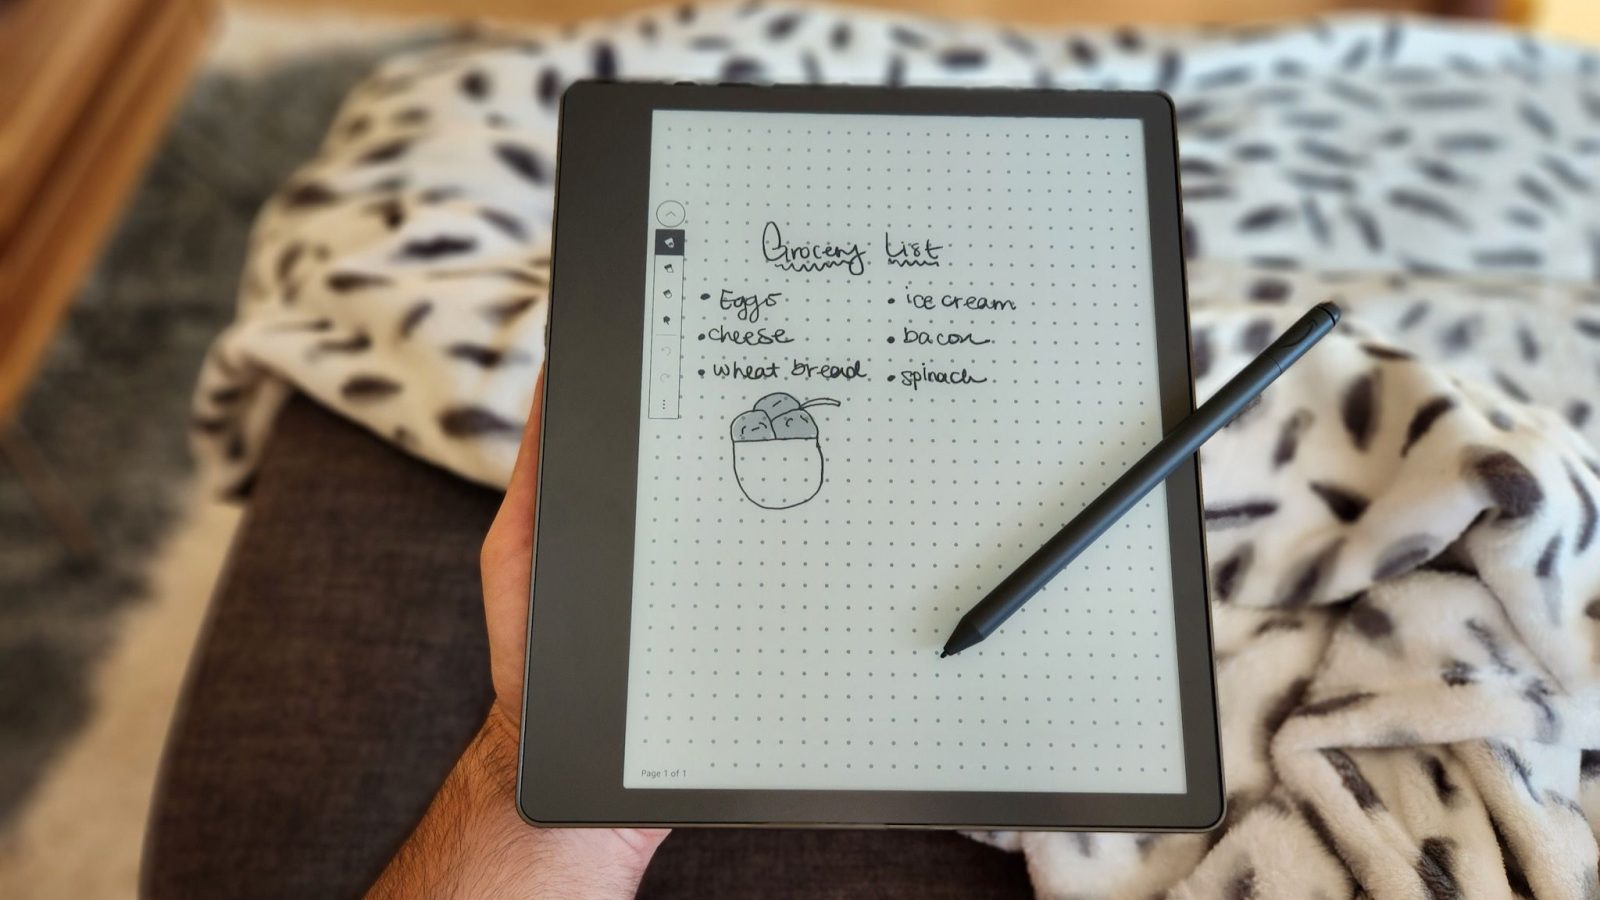 Grocery List
• Eggs
• cheese
• wheat bread
• ice cream
• bacon
• spinach
Page 1 of 1